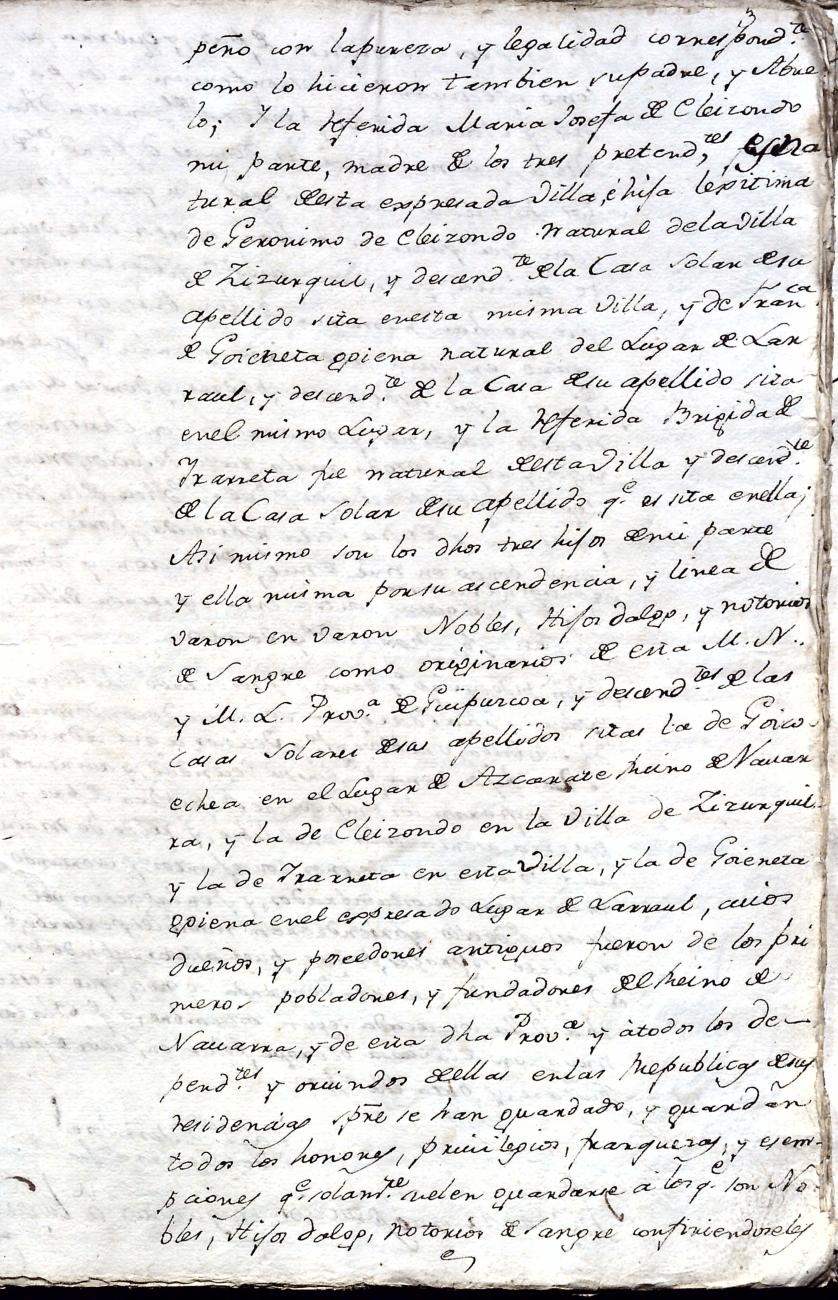 peño con lapureza, y legalidad correspond.te
como lo hicieron tambien supadre, y Abue
lo; Y la Referida Maria Josefa de Eleizondo
mi parte, madre de los tres pretend.tes es na
tural desta expresada Villa, é hija lexitima
de Geronimo de Eleizondo Natural dela Villa
de Zizurquil, y descend.te de la Casa Solar de su
apellido sita enesta misma Villa, y de Fran.ca
de Goieneta goiena natural del Lugar de Lar
raul, y descend.te de la Casa de su apellido sita
enel mismo Lugar, y la Referida Brigida de
Irarreta fue natural desta Villa y descend.te
de la Casa Solar de su apellido q.e es sita enella;
Asi mismo son los dhos tres hijos de mi parte
y ella misma por su ascendencia, y linea de
varon en varon Nobles, Hijos dalgo, y notorios
de Sangre como originarios de esta M. N.
y M. L. Prov.a de Guipuzcoa, y descend.tes de las
Casas Solares de sus apellidos sitas la de Goico-
echea en el Lugar de Azcarate Reino de Navar
ra, y la de Eleizondo en la Villa de Zizurquil
y la de Irarreta en esta Villa, y la de Goieneta
goiena enel expresado Lugar de Larraul, cuios
dueños, y poseedores antiguos fueron de los pri
meros pobladores, y fundadores del Reino de
Navarra, y de esta dha Prov.a y à todos los de-
pend.tes y oriundos de ellas en las Republicas de sus
residencias spre se han guardado, y guardan
todos los honores, privilegios, franquezas, y esem-
pciones q.e solam.te suelen guardarse à los q.e son No-
bles, Hijos dalgo, notorios de Sangre confiriendoseles